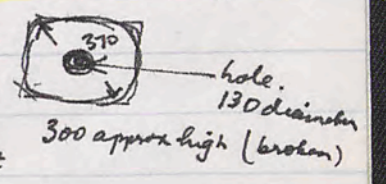 370
hole.
130 diameter
300 approx high (broken)